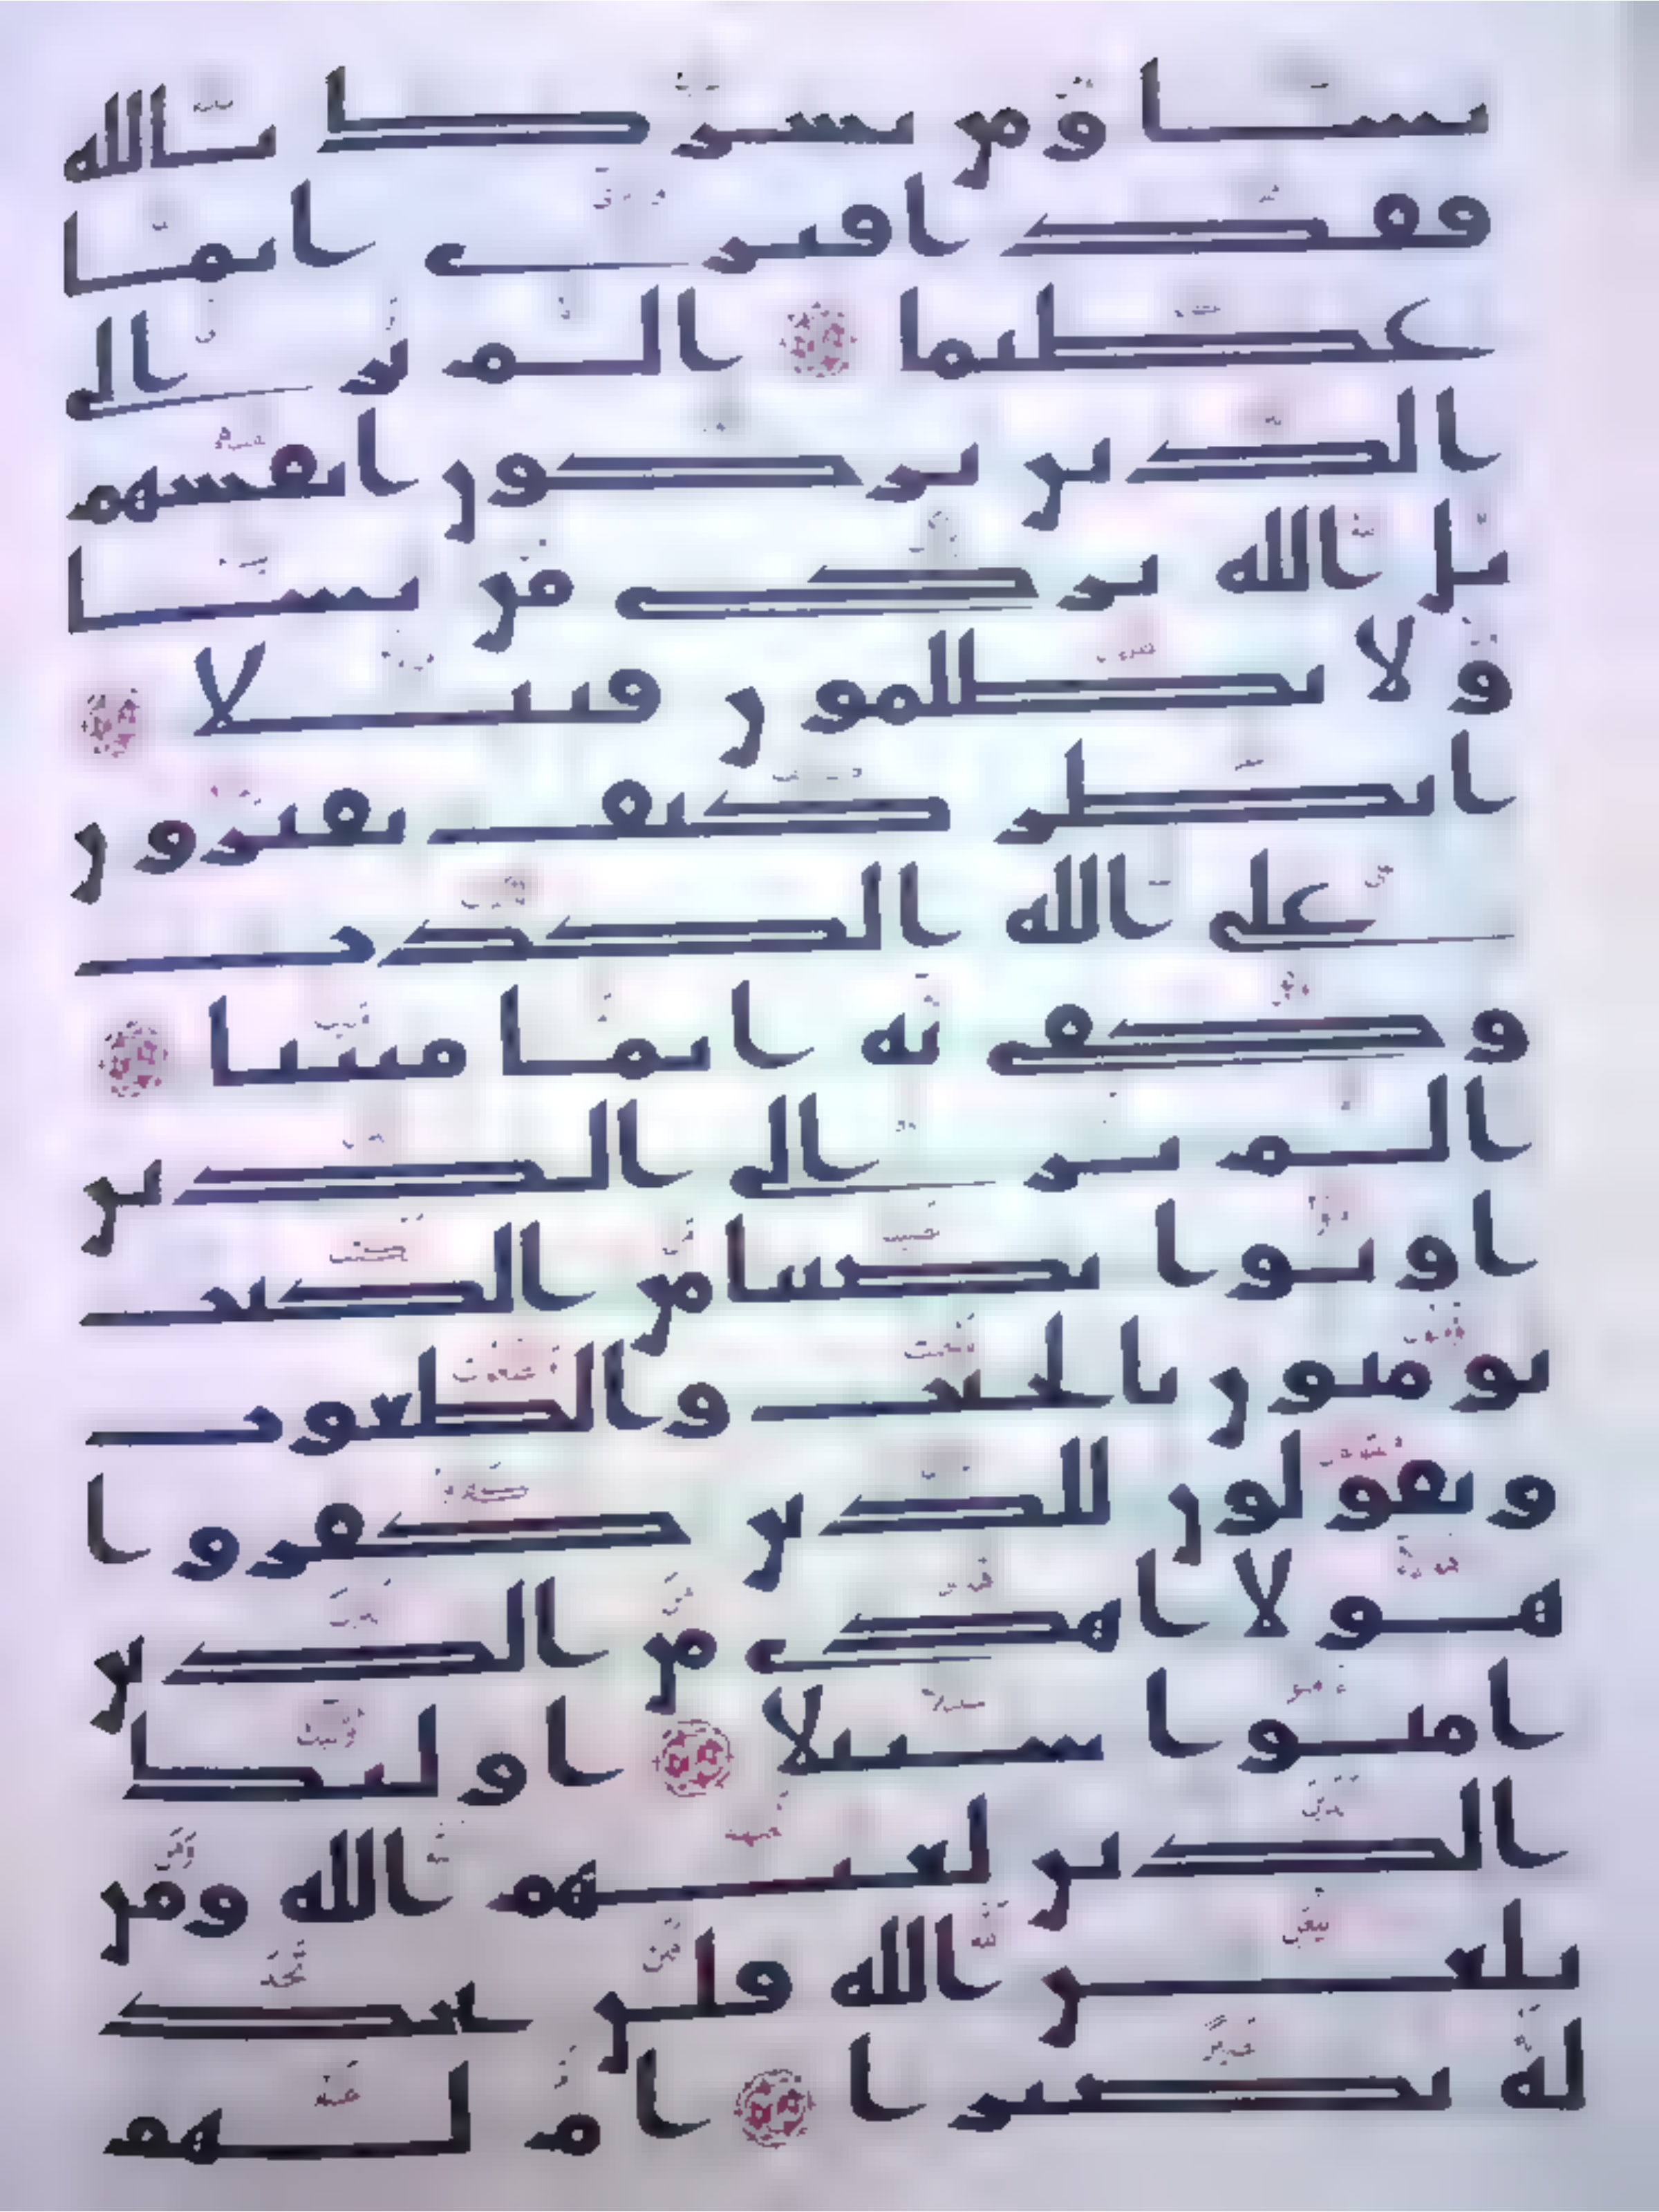 يشا ومن يشرك بالله
فقد افترى اثما
عظيما الم تر الى
الذين يزكون انفسهم
بل الله يزكى من يشا
ولا يظلمون فتيلا
انظر كيف يفترون
على الله الكذب
وكفى به اثما مبينا
الم تر الى الذين
اوتوا نصيبا من الكتب
يومنون بالجبت والطغوت
ويقولون للذين كفروا
هولا اهدى من الذين
امنوا سبيلا اولئك
الذين لعنهم الله ومن
يلعن الله فلن تجد
له نصيرا ام لهم